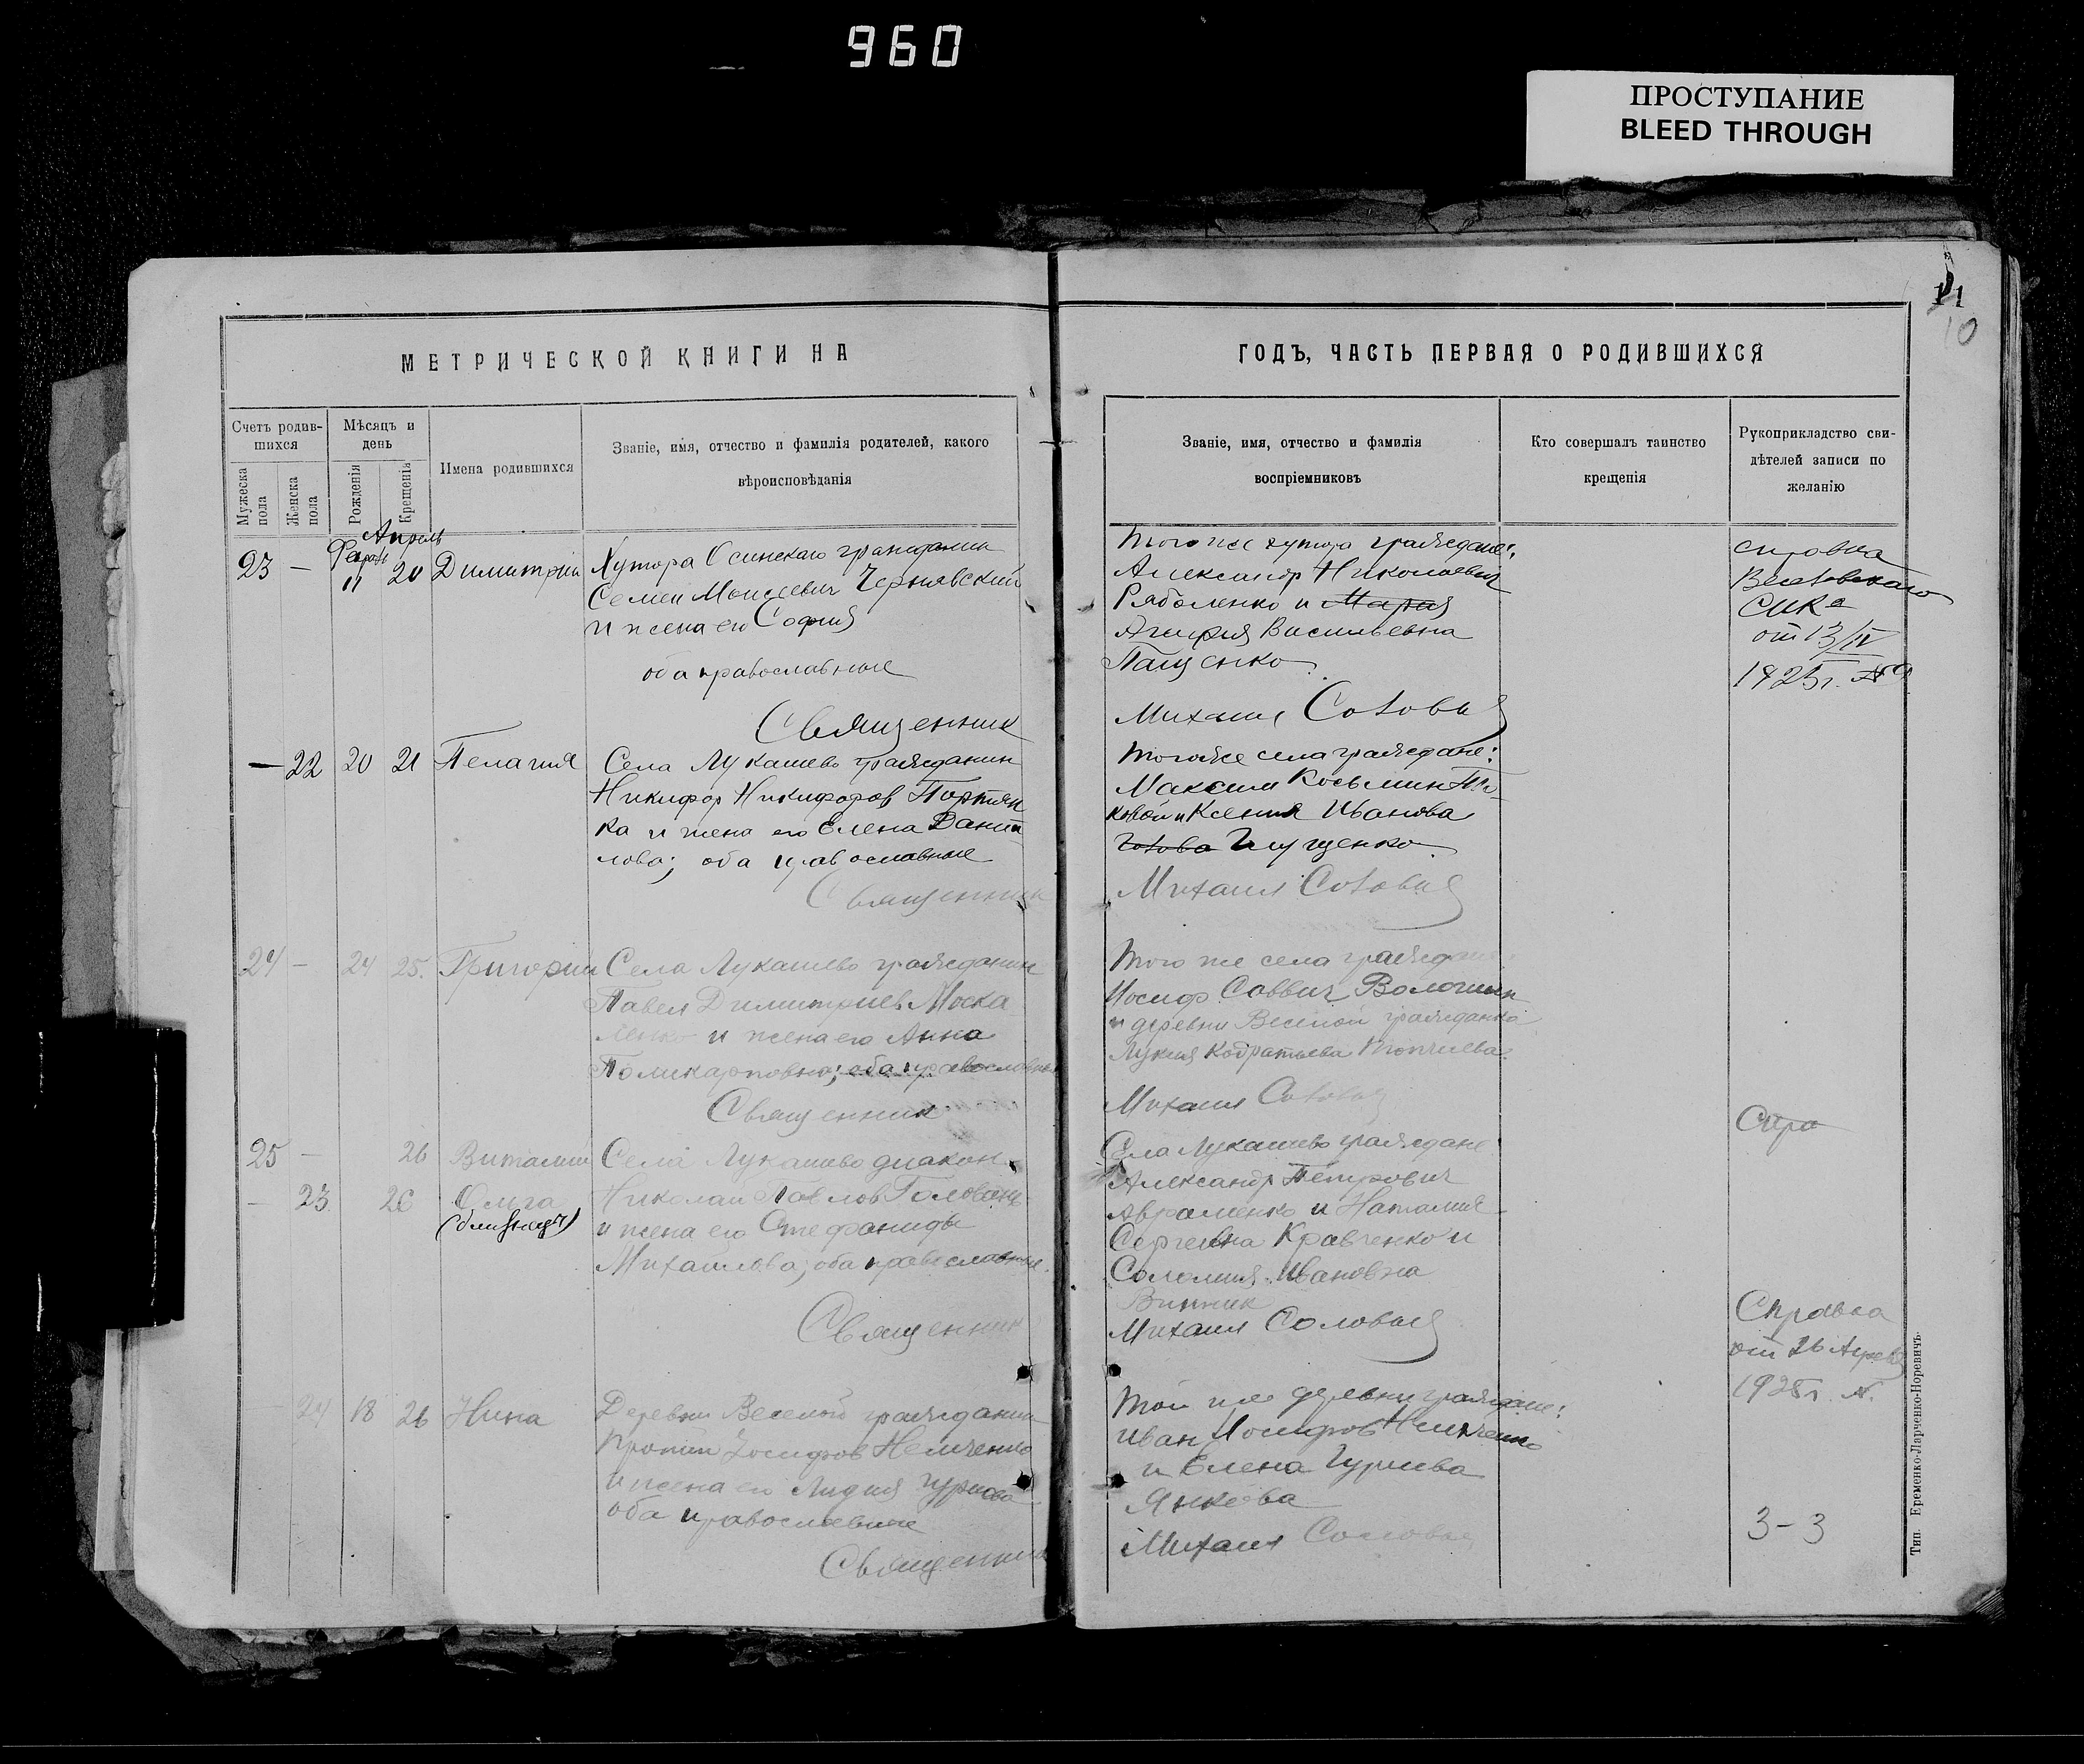 960
ПРОСТУПАНИЕ
BLEED THROUGH
11
10
МЕТРИЧЕСКОЙ КНИГИ НА
ГОДЪ, ЧАСТЬ ПЕРВАЯ О РОДИВШИХСЯ
Счетъ родив-
шихся
Мужеска
пола
Женска
пола
Мѣсяцъ и
день
Рожденія
Крещенія
Имена родившихся
Званіе, имя, отчество и фамилія родителей, какого
вѣроисповѣданія
Званіе, имя, отчество и фамилія
воспріемниковъ
Кто совершалъ таинство
крещенія
Рукоприкладство сви-
дѣтелей записи по
желанію
Апрель
23 — 11 20 Димитрий
Хутора Осинскаго гражданин
Семен Моисеевич Чернявский
и жена его София
оба православные
Священник
Того же хутора граждане:
Александр Николаевич
Ряболенко и Мария
Васильевна
Пащенко
Михаил Соловьев
справка
от 13/IV
1925 г. №
— 22 20 21 Пелагия
Села Лукашево гражданин
Никифор Никифоров Портян
ка и жена его Елена Дании
лова; оба православные
Священник
Того же села граждане:
Максим Косьмин
и Ксения Иванова
Глущенко
Михаил Соловьев
24 — 24 25. Григорий
Села Лукашево гражданин
Павел Димитриев Моска
ленко и жена его Анна
Поликарповна; оба православные
Священник
Того же села граждане
Иосиф Саввич Волошин
и деревни Веселой гражданка
Лукия Кодратьева Топчиева
Михаил Соловьев
25 — 26 Виталий
— 23 26 Ольга
(близнецы)
Села Лукашево диакон
Николай Павлов Головань
и жена его Стефанида
Михайлова; оба православные.
Священник
Села Лукашево граждане
Александр Петрович
Авраменко и Наталия
Сергеевна Кравченко и
Соломия Ивановна
Винник
Михаил Соловьев
Спра
Справка
от 26 Апреля
1925 г. №
24 18 26 Нина
Деревни Веселой гражданин
Иосифов Немченко
и жена его Лидия Гурьева
оба православные
Священник
Той же деревни граждане:
Иван Иосифов Немченко
и Елена Гурьева
Янкова
Михаил Соловьев
3-3
Тип. Еременко-Ларченко-Норевичъ.